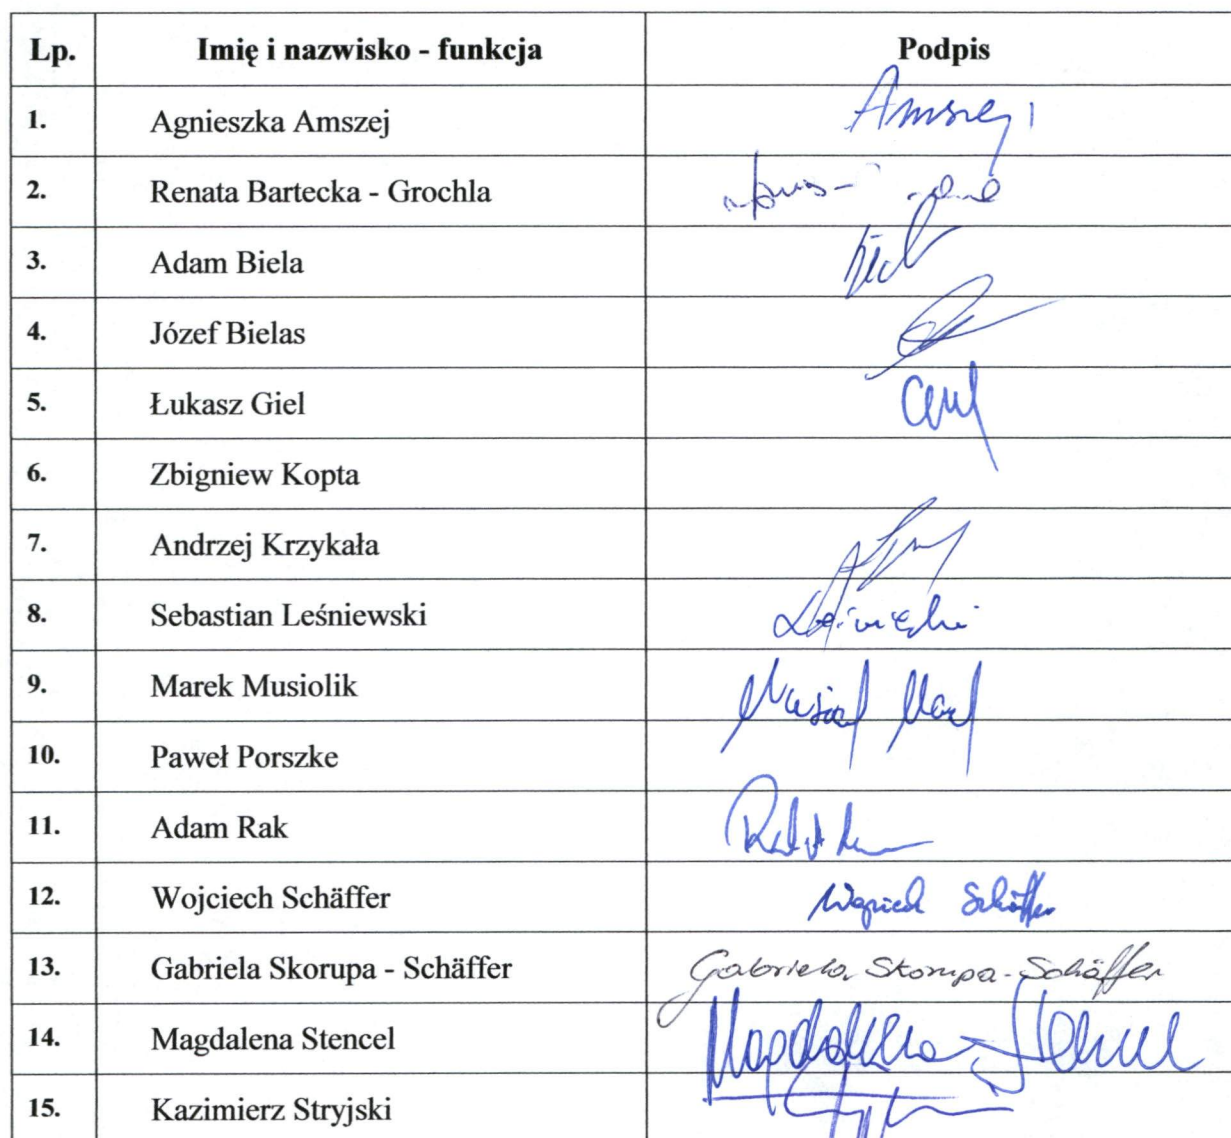 Lp. Imię i nazwisko - funkcja Podpis
1. Agnieszka Amszej Amszej
2. Renata Bartecka - Grochla
3. Adam Biela
4. Józef Bielas
5. Łukasz Giel
6. Zbigniew Kopta
7. Andrzej Krzykała
8. Sebastian Leśniewski
9. Marek Musiolik
10. Paweł Porszke
11. Adam Rak
12. Wojciech Schäffer Wojciech Schäffer
13. Gabriela Skorupa - Schäffer Gabriela Skorupa-Schäffer
14. Magdalena Stencel Magdalena Stencel
15. Kazimierz Stryjski